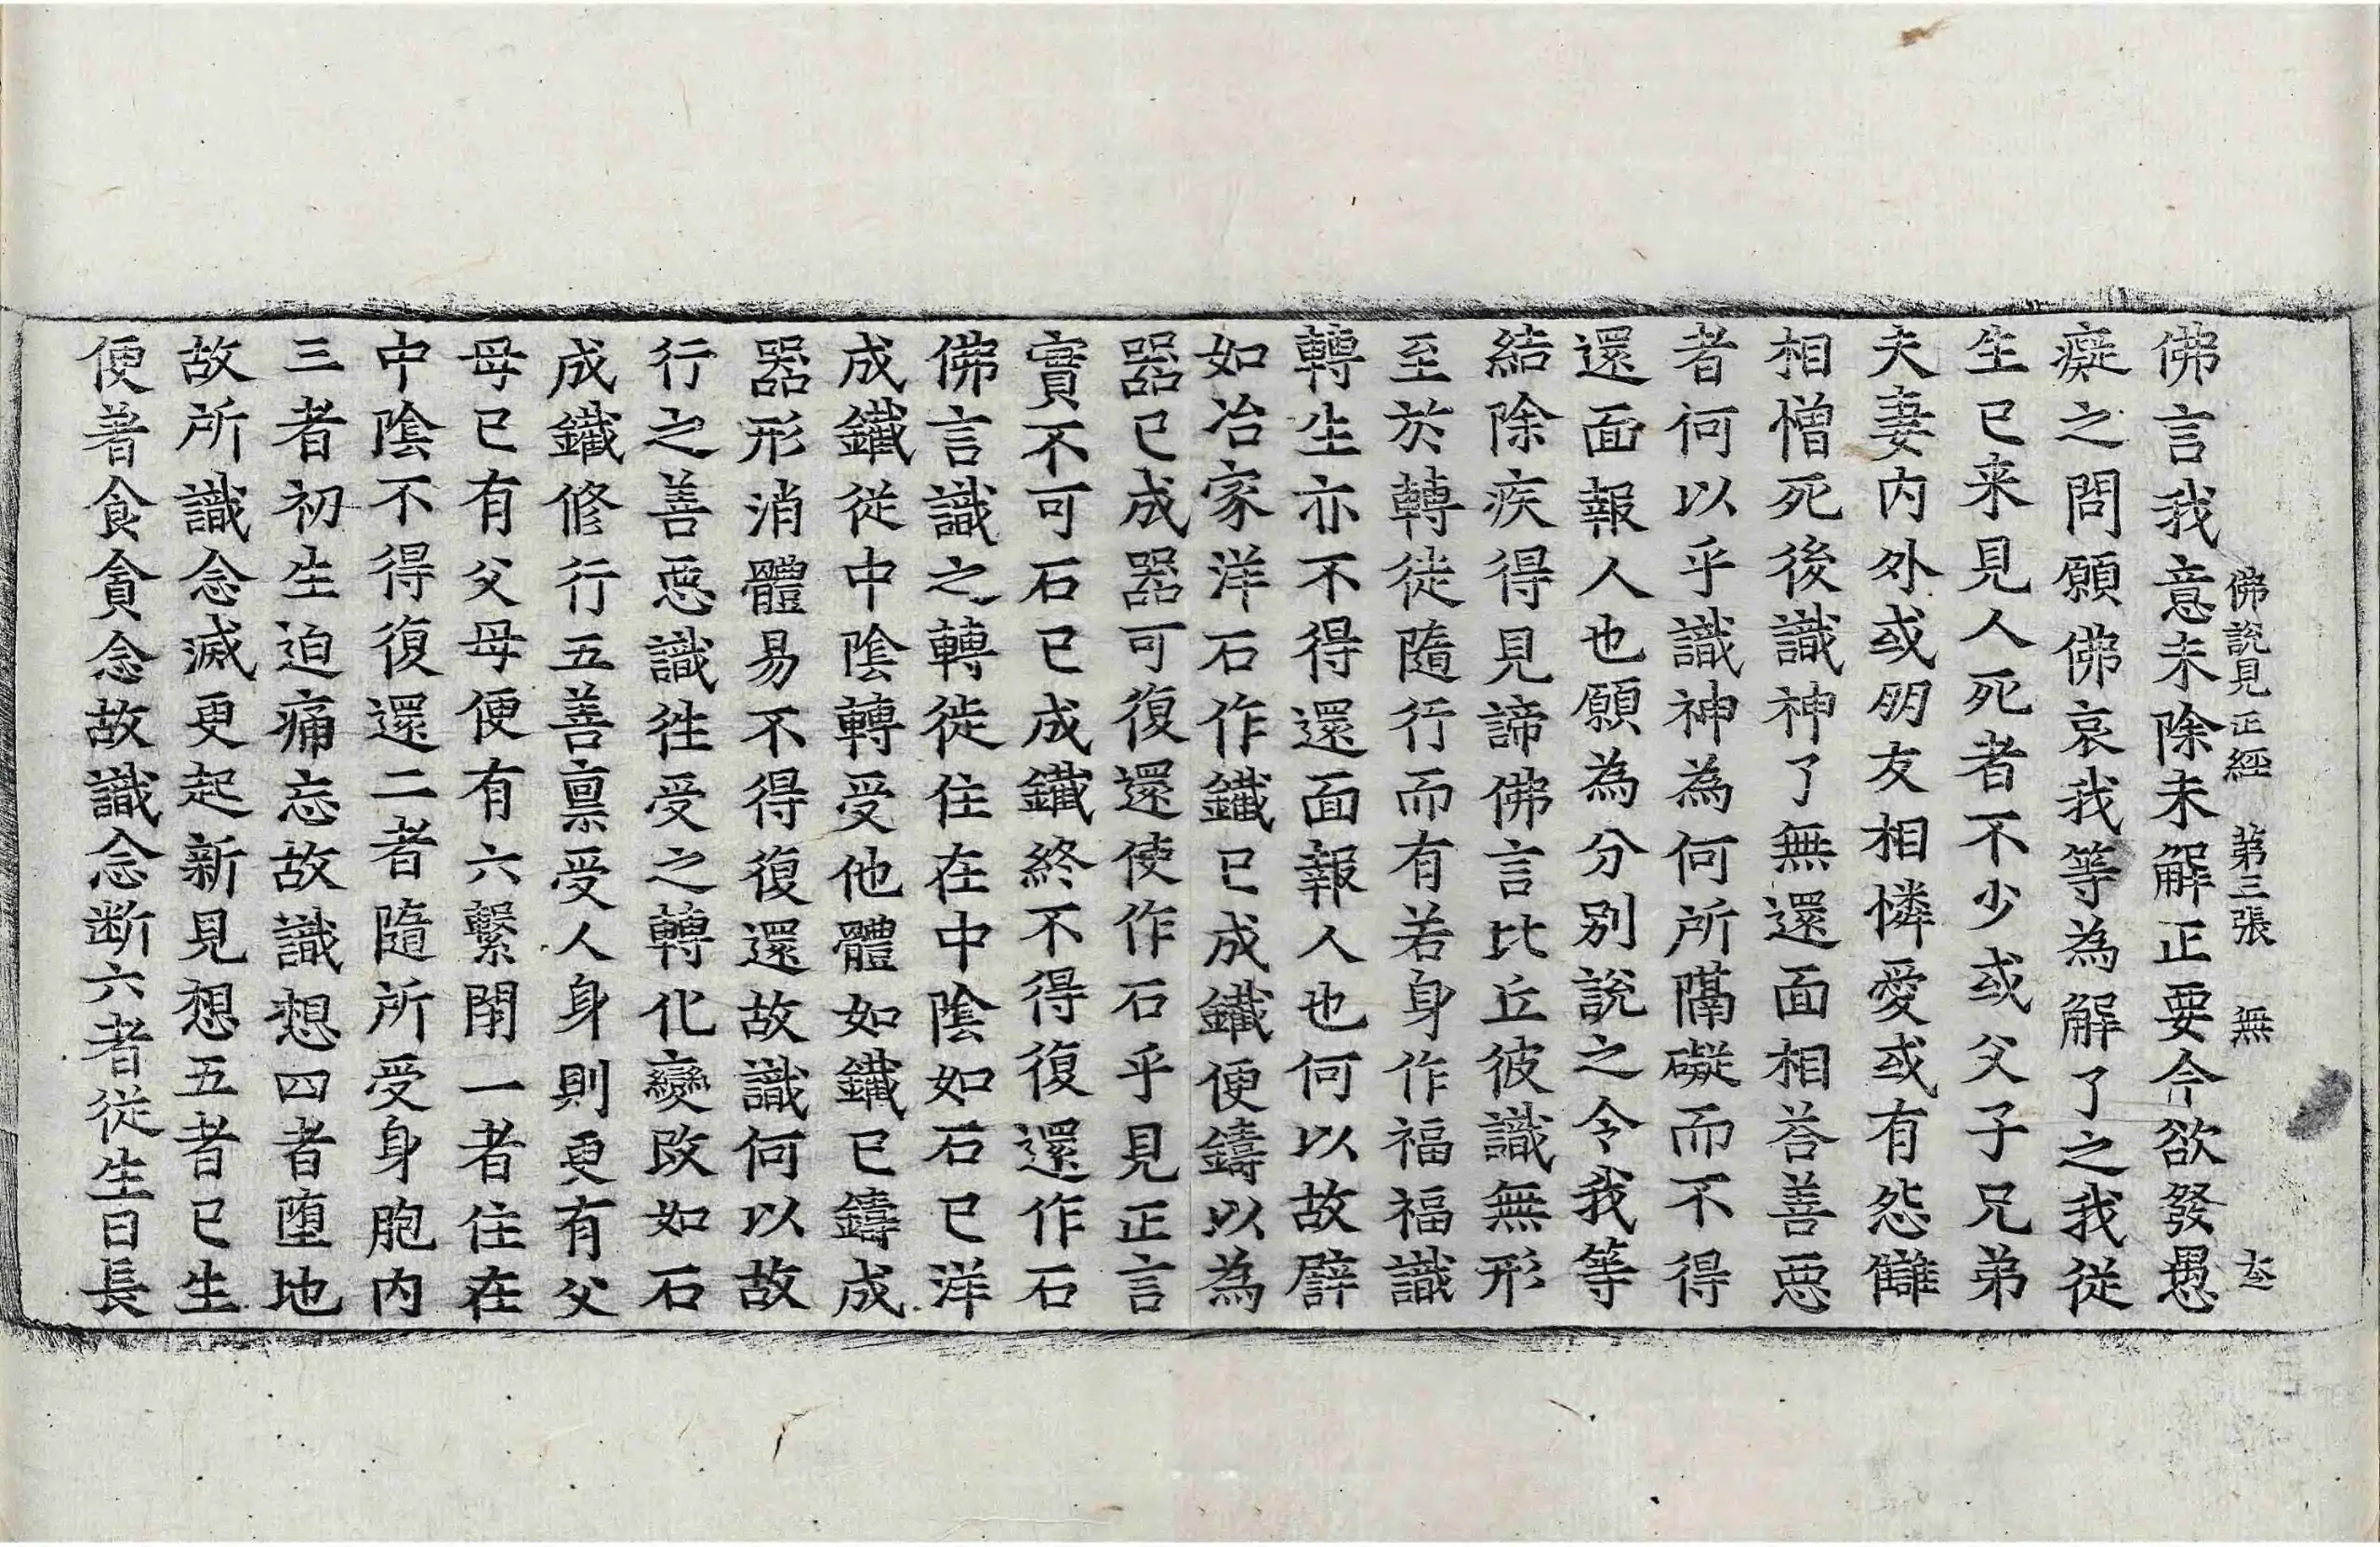 佛說見正經 第三張 無
佛言我意未除未解正要今欲發愚
癡之問願佛哀我等為解了之我從
生已来見人死者不少或父子兄弟
夫妻内外或朋友相憐愛或有怨讎
相憎死後識神了無還面相荅善惡
者何以乎識神為何所隔礙而不得
還面報人也願為分別說之令我等
結除疾得見諦佛言比丘彼識無形
至於轉徙隨行而有若身作福福識
轉生亦不得還面報人也何以故譬
如冶家洋石作鐵已成鐵便鑄以為
器已成器可復還使作石乎見正言
實不可石已成鐵終不得復還作石
佛言識之轉徙住在中陰如石已洋
成鐵從中陰轉受他體如鐵已鑄成
器形消體易不得復還故識何以故
行之善惡識徃受之轉化變改如石
成鐵修行五善禀受人身則更有父
母已有父母便有六繫閉一者住在
中陰不得復還二者隨所受身胞内
三者初生迫痛忘故識想四者墮地
故所識念滅更起新見想五者已生
便著食貪念故識念断六者從生日長